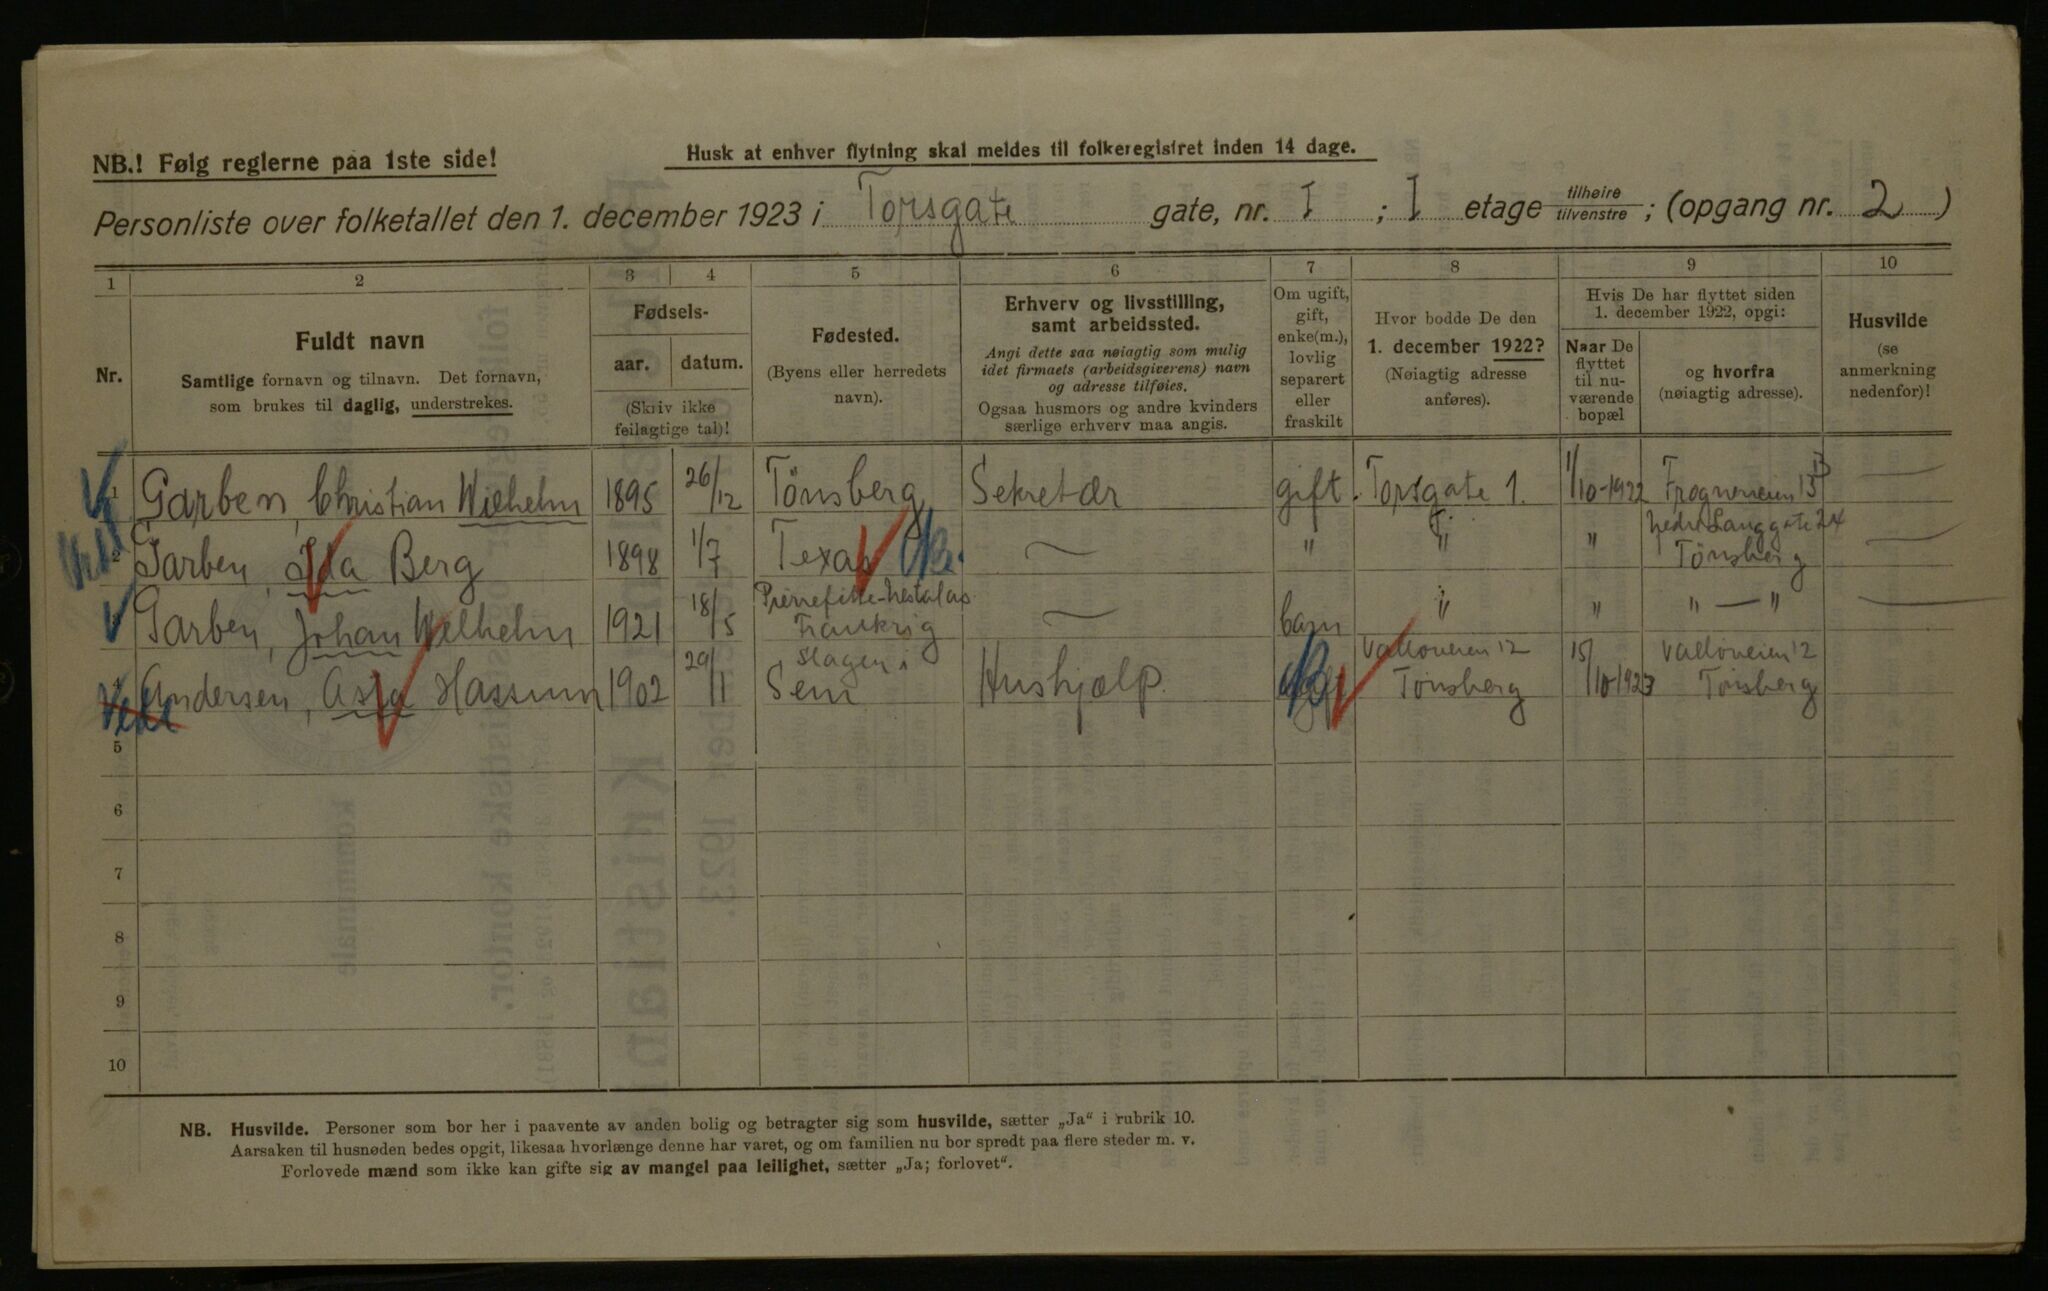 NB.! Følg reglerne paa 1ste side!
Husk at enhver flytning skal meldes til folkeregistret inden 14 dage.
Personliste over folketallet den 1. december 1923 i Torsgate gate, nr. I ; I etage tilhøire/tilvenstre ; (opgang nr. 2 )
1 2 3 4 5 6 7 8 9 10
Nr.
Fuldt navn
Samtlige fornavn og tilnavn. Det fornavn,
som brukes til daglig, understrekes.
Fødsels-
aar. datum.
(Skriv ikke
feilagtige tal)!
Fødested.
(Byens eller herredets
navn).
Erhverv og livsstilling,
samt arbeidssted.
Angi dette saa nøiagtig som mulig
idet firmaets (arbeidsgiverens) navn
og adresse tilføies.
Ogsaa husmors og andre kvinders
særlige erhverv maa angis.
Om ugift,
gift,
enke(m.),
lovlig
separert
eller
fraskilt
Hvor bodde De den
1. december 1922?
(Nøiagtig adresse
anføres).
Hvis De har flyttet siden
1. december 1922, opgi:
Naar De
flyttet
til nu-
værende
bopæl
og hvorfra
(nøiagtig adresse).
Husvilde
(se
anmerkning
nedenfor)!
1 Garben, Christian Wilhelm 1895 26/12 Tönsberg Sekretær gift. Torsgate 1. 1/10-1922 Frogneveien 13
2 Garben, Ida Berg 1898 1/7 Texas — " " " Nedre Langgate 24 Tönsberg —
3 Garben, Johan Wilhelm 1921 18/5 Pierrefitte-Nestalas Frankrig — barn " " " — " —
4 Andersen, Asta Hassum 1902 29/1 Slagen i Sem Hushjælp. Valløveien 12 Tønsberg 15/10-1923 Valløveien 12 Tønsberg
5
6
7
8
9
10
NB. Husvilde. Personer som bor her i paavente av anden bolig og betragter sig som husvilde, sætter „Ja“ i rubrik 10.
Aarsaken til husnøden bedes opgit, likesaa hvorlænge denne har varet, og om familien nu bor spredt paa flere steder m. v.
Forlovede mænd som ikke kan gifte sig av mangel paa leilighet, sætter „Ja; forlovet“.